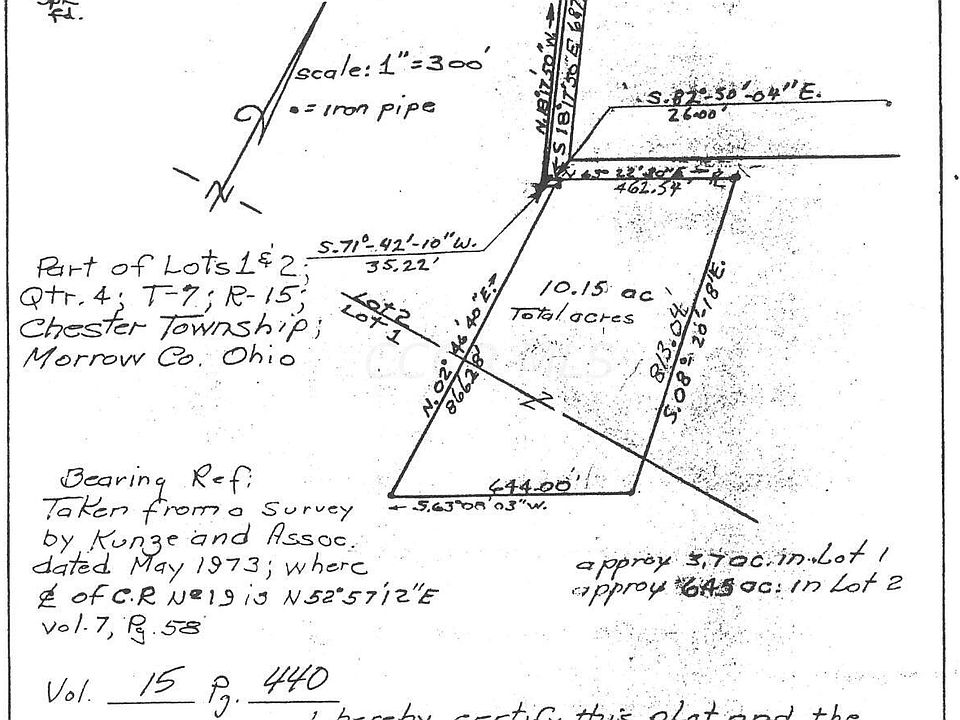 fd.
scale: 1"=300'
•= Iron pipe
N. 18°17'50" W.
S 18°17'50" E 687
S. 82°-50'-04" E.
26.00'
462.54'
S. 71°-42'-10" W.
35.22'
Part of Lots 1 & 2;
Qtr. 4; T-7; R-15;
Chester Township;
Morrow Co. Ohio
Lot 2
Lot 1
10.15 ac
Total acres
N. 02° 46' 40" E.
866.28'
813.04'
S. 08°- 26'-18" E.
644.00'
← S. 63°08'03" W.
Bearing Ref:
Taken from a survey
by Kunze and Assoc.
dated May 1973; where
℄ of C.R Nº 19 is N 52°57'12" E
vol. 7, Pg. 58
approx 3.70 c. in Lot 1
approx 6.45 ac. in Lot 2
Vol. 15 Pg. 440
I hereby certify this plat and the